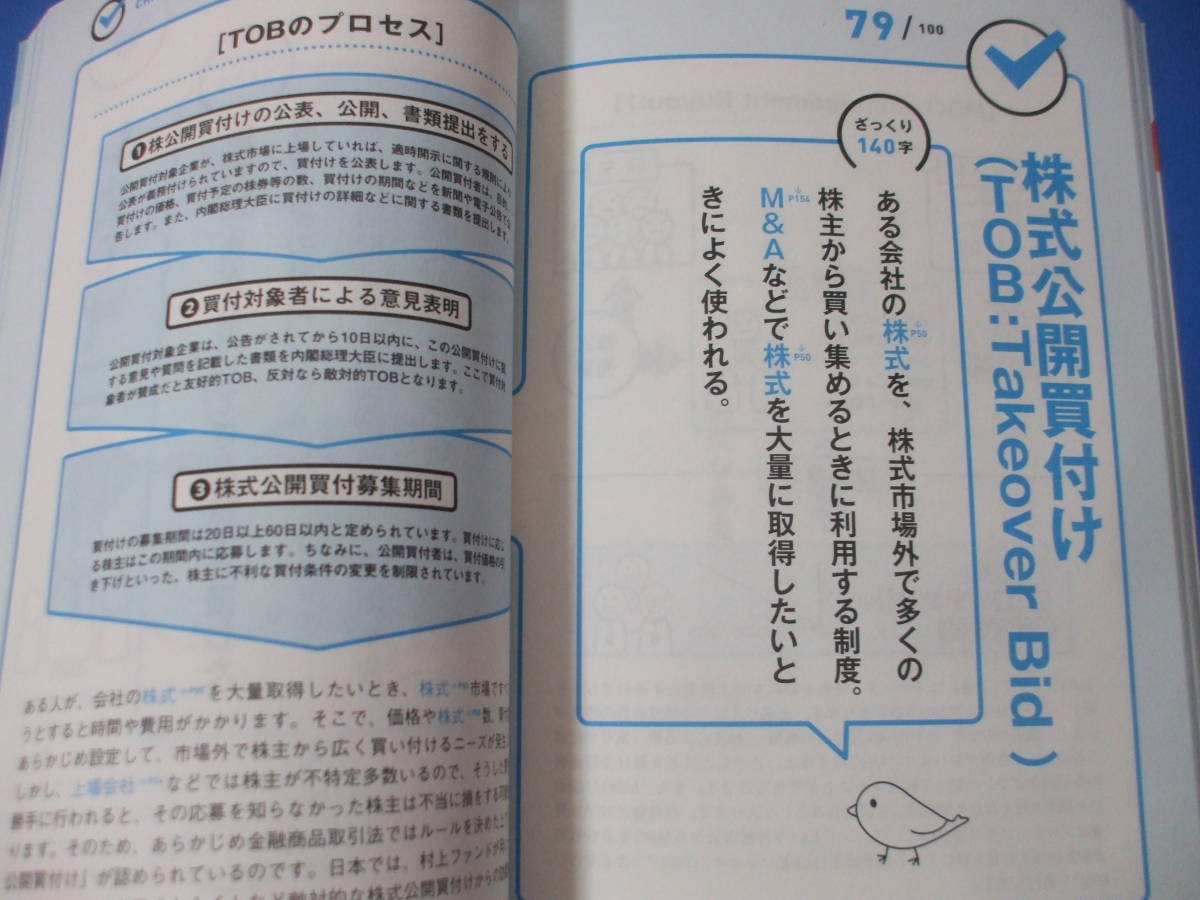 79/100
株式公開買付け
(TOB:Takeover Bid)
ざっくり
140字
ある会社の株式を、株式市場外で多くの
P50
株主から買い集めるときに利用する制度。
M&Aなどで株式を大量に取得したいと
P154
P50
きによく使われる。
[TOBのプロセス]
❶株公開買付けの公表、公開、書類提出をする
公開買付対象企業が、株式市場に上場していれば、適時開示に関する規則により
公表が義務付けられていますので、買付けを公表します。公開買付者は、目的、
買付けの価格、買付予定の株券等の数、買付けの期間などを新聞や電子公告で公
告します。また、内閣総理大臣に買付けの詳細などに関する書類を提出します。
❷買付対象者による意見表明
公開買付対象企業は、公告がされてから10日以内に、この公開買付けに関
する意見や質問を記載した書類を内閣総理大臣に提出します。ここで買付対
象者が賛成だと友好的TOB、反対なら敵対的TOBとなります。
❸株式公開買付募集期間
買付けの募集期間は20日以上60日以内と定められています。買付けに応じ
る株主はこの期間内に応募します。ちなみに、公開買付者は、買付価格の引
き下げといった、株主に不利な買付条件の変更を制限されています。
ある人が、会社の株式を大量取得したいとき、株式市場です
うとすると時間や費用がかかります。そこで、価格や株式数、
あらかじめ設定して、市場外で株主から広く買い付けるニーズが発生
しかし、上場会社などでは株主が不特定多数いるので、そうした
勝手に行われると、その応募を知らなかった株主は不当に損をする可
ります。そのため、あらかじめ金融商品取引法ではルールを決めた上
公開買付け」が認められているのです。日本では、村上ファンドが
など敵対的な株式公開買付けからの